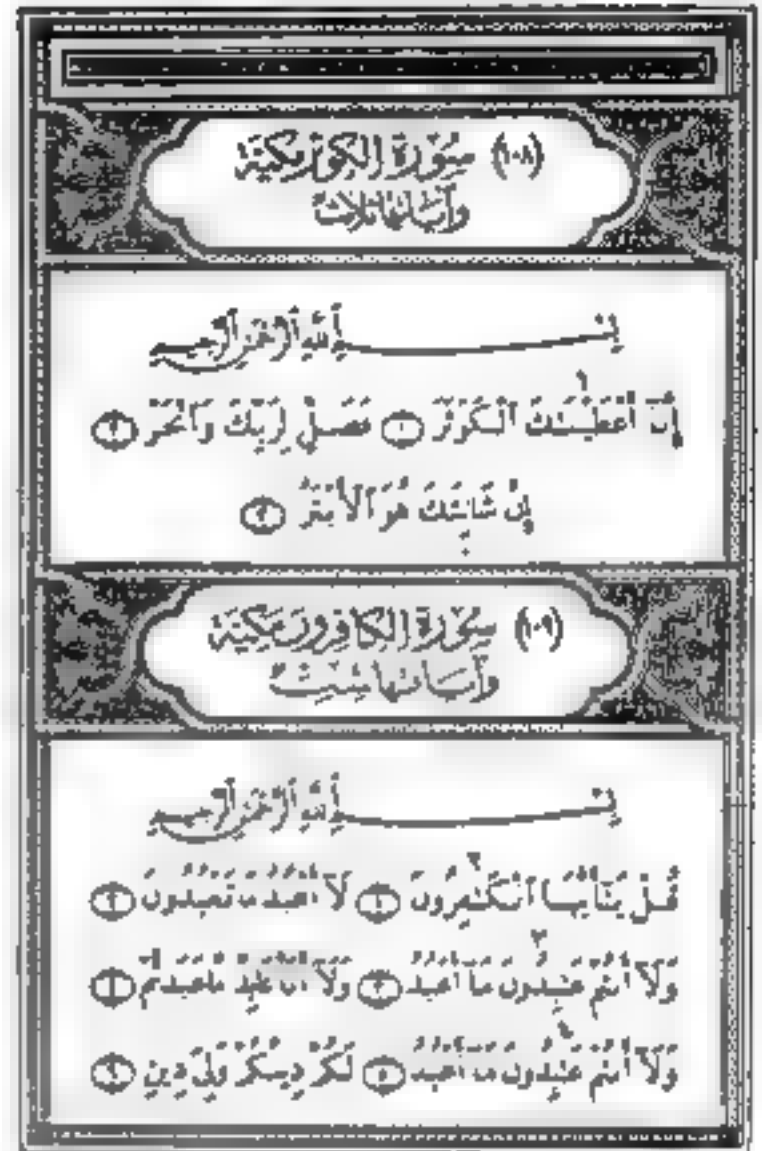 (١٠٨) سُورَة الكوثر مكيّة
وآياتها ثلاث
بِسْمِ ٱللَّهِ ٱلرَّحْمَٰنِ ٱلرَّحِيمِ
إِنَّآ أَعْطَيْنَٰكَ ٱلْكَوْثَرَ ١ فَصَلِّ لِرَبِّكَ وَٱنْحَرْ ٢
إِنَّ شَانِئَكَ هُوَ ٱلْأَبْتَرُ ٣
(١٠٩) سُورَة الكافرون مكيّة
وآياتها ست
بِسْمِ ٱللَّهِ ٱلرَّحْمَٰنِ ٱلرَّحِيمِ
قُلْ يَٰٓأَيُّهَا ٱلْكَٰفِرُونَ ١ لَآ أَعْبُدُ مَا تَعْبُدُونَ ٢
وَلَآ أَنتُمْ عَٰبِدُونَ مَآ أَعْبُدُ ٣ وَلَآ أَنَا۠ عَابِدٌ مَّا عَبَدتُّمْ ٤
وَلَآ أَنتُمْ عَٰبِدُونَ مَآ أَعْبُدُ ٥ لَكُمْ دِينُكُمْ وَلِيَ دِينِ ٦